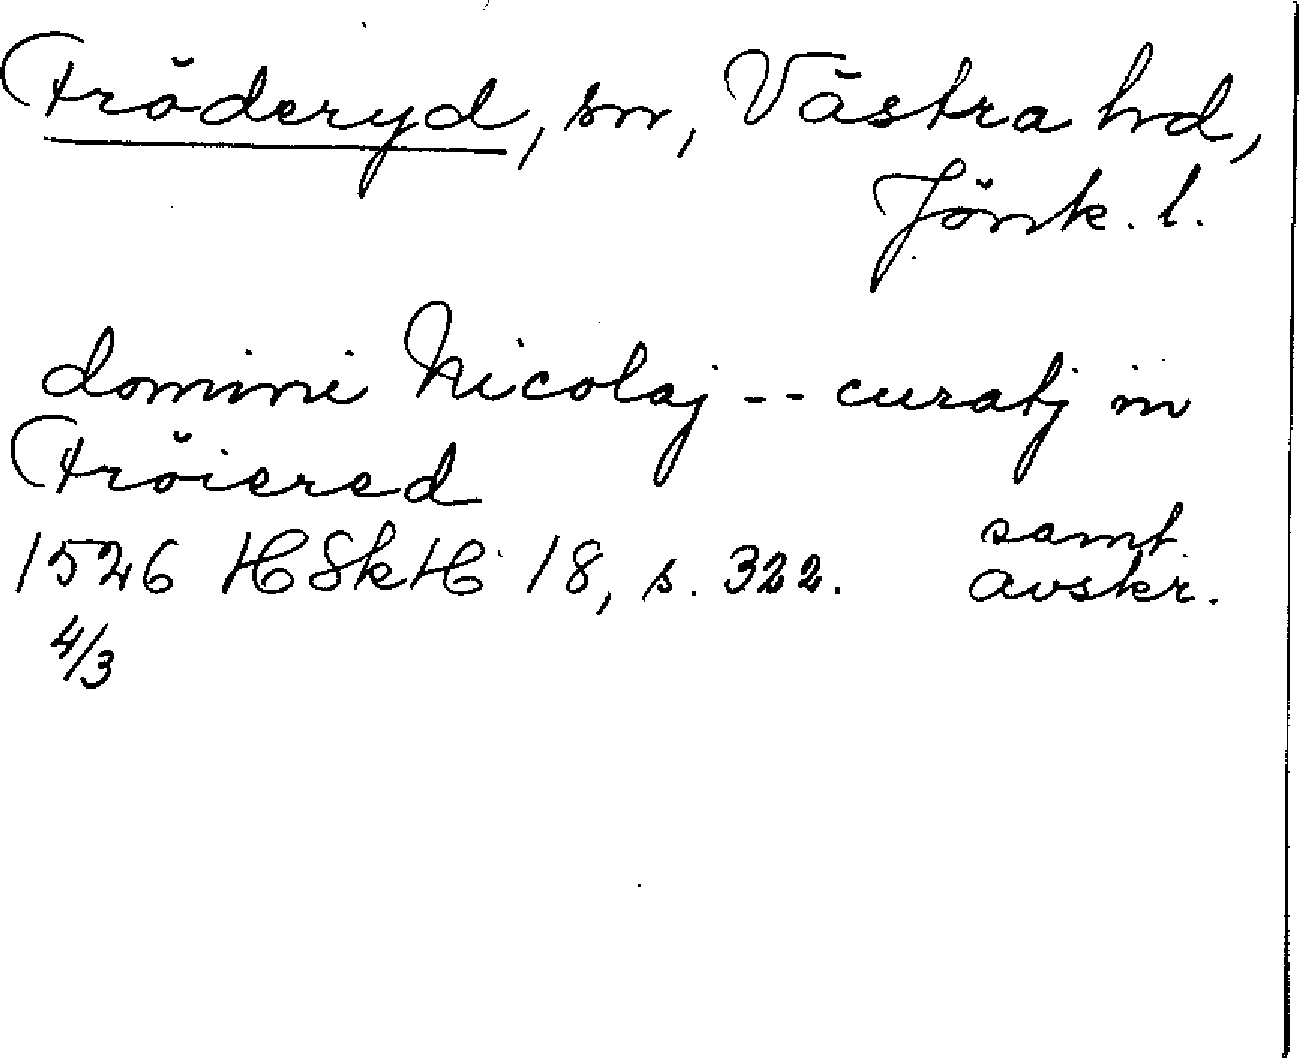 Fröderyd, sn, Västra hd,
Jönk. l.
domini Nicolaj -- curatj in
Fröiered
1526 HSkH 18, s. 322. samt. avskr.
4/3